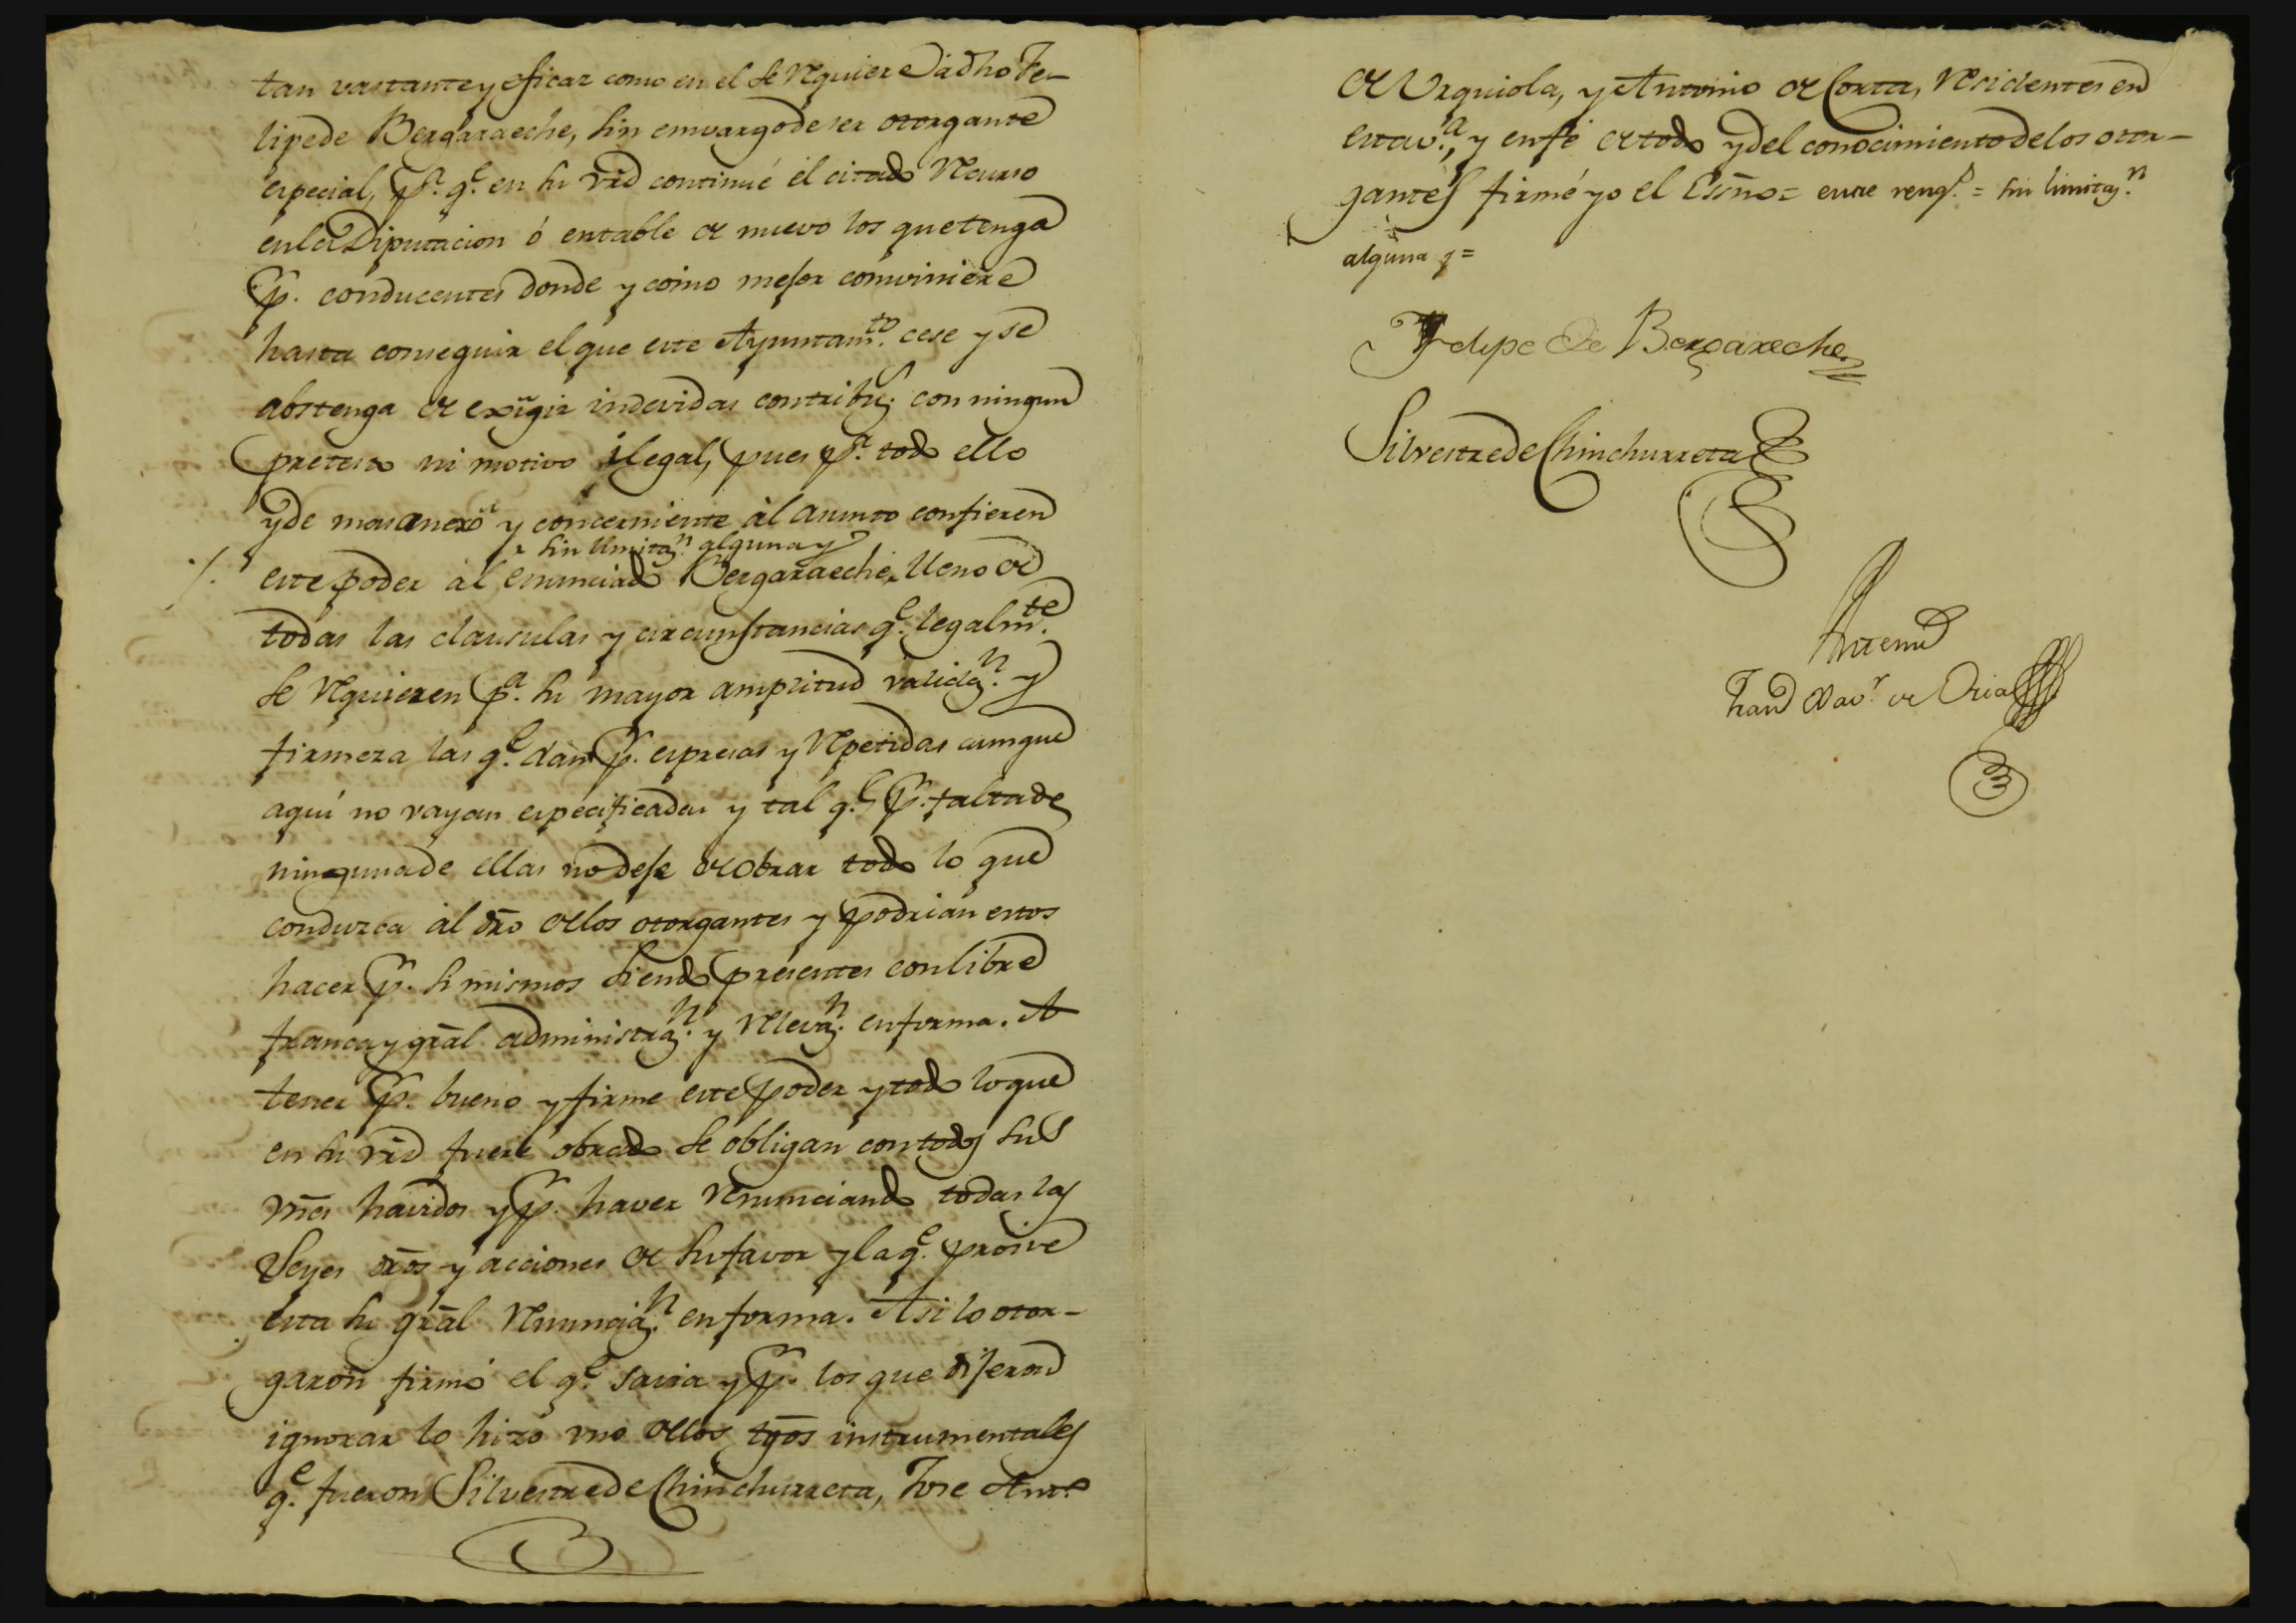 tan vastante y eficaz como en el se requiere à dho Fe-
lipe de Bergaraeche, sin emvargo de ser otorgante
especial, pª. qᵉ. en su vrd continué él citado recurso
en la Diputacion ó entable de nuevo los que tenga
pʳ. conducentes donde y como mejor conviniere
hasta conseguir el que este Ayuntamᵗᵒ. cese y se
abstenga de exigir indevidas contribuˢ. con ningun
pretesto ni motivo ilegal, pues pª. todo ello
y de mas anexô y concerniente àl asunto confieren
sin limitaⁿ. alguna y
este poder àl enunciado Bergaraeche, lleno de
todas las clausulas y circunstancias qᵉ. legalmᵗᵉ.
se requieren pª. su mayor amplitud validaⁿ. y
firmeza las qᵉ. dàn pʳ. espresas y repetidas aunque
aquí no vayan especificadas y tal qᵉ. pʳ. falta de
ninguna de ellas no deje de obrar todo lo que
conduzca àl dro de los otorgantes y podrian estos
hacer pʳ. si mismos siendo presentes con libre
franca y gral administraⁿ. y relevaⁿ. en forma. A
tener pʳ. bueno y firme este poder y todo lo que
en su vrd fuere obrado se obligan con todos sus
vnes havidos y pʳ. haver renunciando todas las
Leyes dros y acciones de su favor y la qᵉ. proive
esta su gral renunciaⁿ. en forma. Asi lo otor-
garon firmó el qᵉ. savia y pʳ. los que dijeron
ignorar lo hizo uno de los tgos instrumentales
qᵉ. fueron Silvestre de Chinchurreta, Jose Antᵒ
de Urquiola, y Antonio de Corta, residentes en
esta vª., y en fé de todo y del conocimiento de los otor-
gantes firmé yo el Essno = entre rengˢ. = sin limitaⁿ.
alguna y =
Felipe de Bergareche
Silvestre de Chinchurreta
Antemi
Xavʳ. de Oria